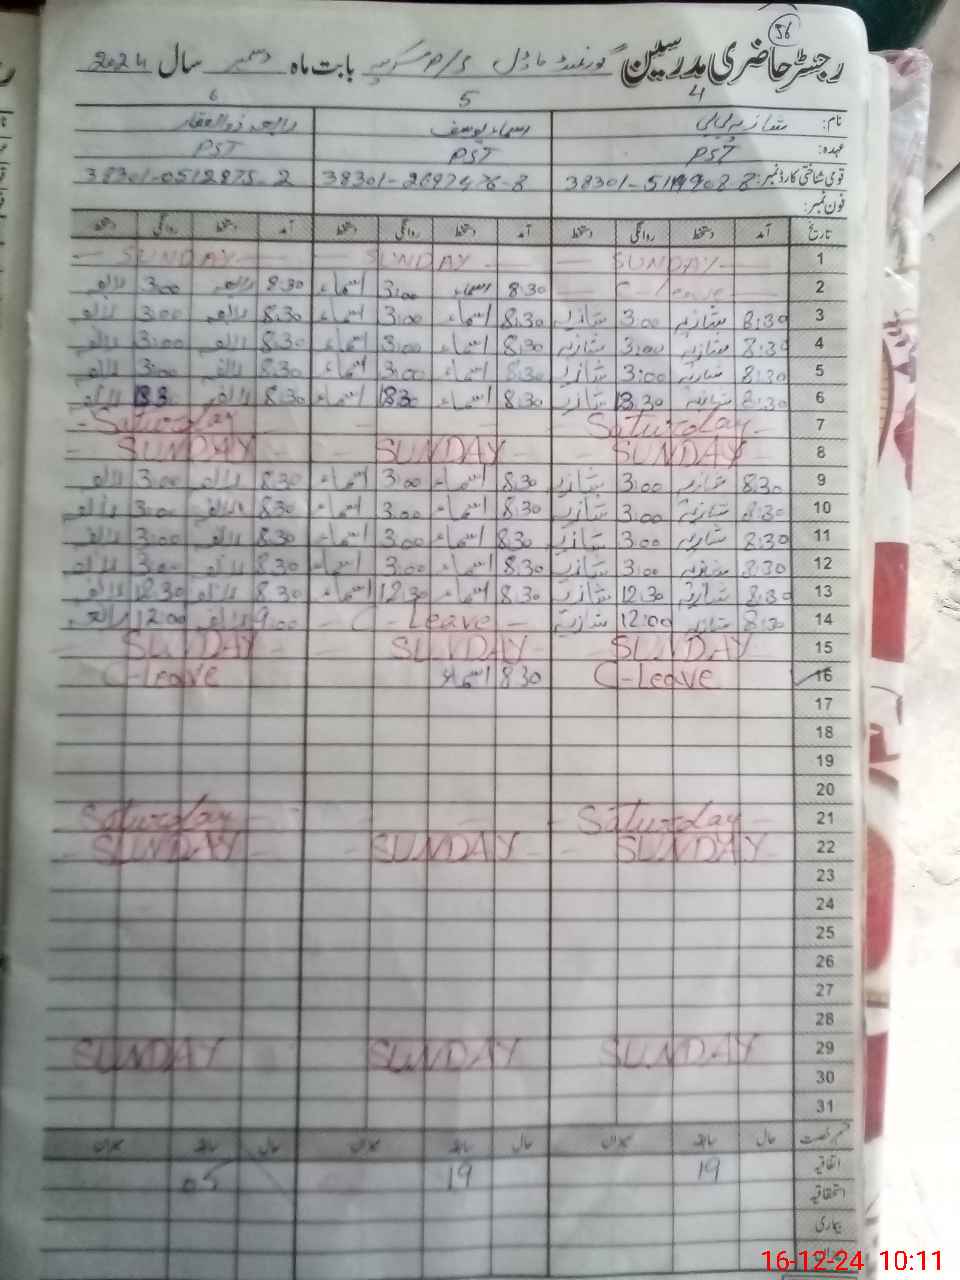 56
رجسٹر حاضری مدرسین گورنمنٹ ماڈل P/S بابت ماہ دسمبر سال 2024
4 5 6
نام: شازیہ بی بی اسماء یوسف رابعہ ذوالفقار
عہدہ: PST PST PST
قومی شناختی کارڈ نمبر: 38301-2697476-8 38301-0512875-2
فون نمبر:
تاریخ آمد دستخط روانگی دستخط آمد دستخط روانگی دستخط آمد دستخط روانگی دستخط
1 SUNDAY SUNDAY SUNDAY
2 C-leave 8:30 اسماء 3:00 اسماء 8:30 رابعہ 3:00 رابعہ
3 8:30 شازیہ 3:00 شازیہ 8:30 اسماء 3:00 اسماء 8:30 رابعہ 3:00 رابعہ
4 8:30 شازیہ 3:00 شازیہ 8:30 اسماء 3:00 اسماء 8:30 رابعہ 3:00 رابعہ
5 8:30 شازیہ 3:00 شازیہ 8:30 اسماء 3:00 اسماء 8:30 رابعہ 3:00 رابعہ
6 8:30 شازیہ شازیہ 8:30 اسماء اسماء 8:30 رابعہ رابعہ
7 Saturday Saturday
8 SUNDAY SUNDAY SUNDAY
9 8:30 شازیہ 3:00 شازیہ 8:30 اسماء 3:00 اسماء 8:30 رابعہ 3:00 رابعہ
10 8:30 شازیہ 3:00 شازیہ 8:30 اسماء 3:00 اسماء 8:30 رابعہ 3:00 رابعہ
11 8:30 شازیہ 3:00 شازیہ 8:30 اسماء 3:00 اسماء 8:30 رابعہ 3:00 رابعہ
12 8:30 شازیہ 3:00 شازیہ 8:30 اسماء 3:00 اسماء 8:30 رابعہ 3:00 رابعہ
13 8:30 شازیہ 12:30 شازیہ 8:30 اسماء 12:30 اسماء 8:30 رابعہ 12:30 رابعہ
14 8:30 شازیہ 12:00 شازیہ C-Leave 9:00 رابعہ 12:00 رابعہ
15 SUNDAY SUNDAY SUNDAY
16 C-Leave 8:30 اسماء C-Leave
17
18
19
20
21 Saturday Saturday
22 SUNDAY SUNDAY SUNDAY
23
24
25
26
27
28
29 SUNDAY SUNDAY SUNDAY
30
31
قسم رخصت حال سابقہ میزان حال سابقہ میزان حال سابقہ میزان
اتفاقیہ 19 19 05
استحقاقیہ
بیماری
میزان
16-12-24 10:11